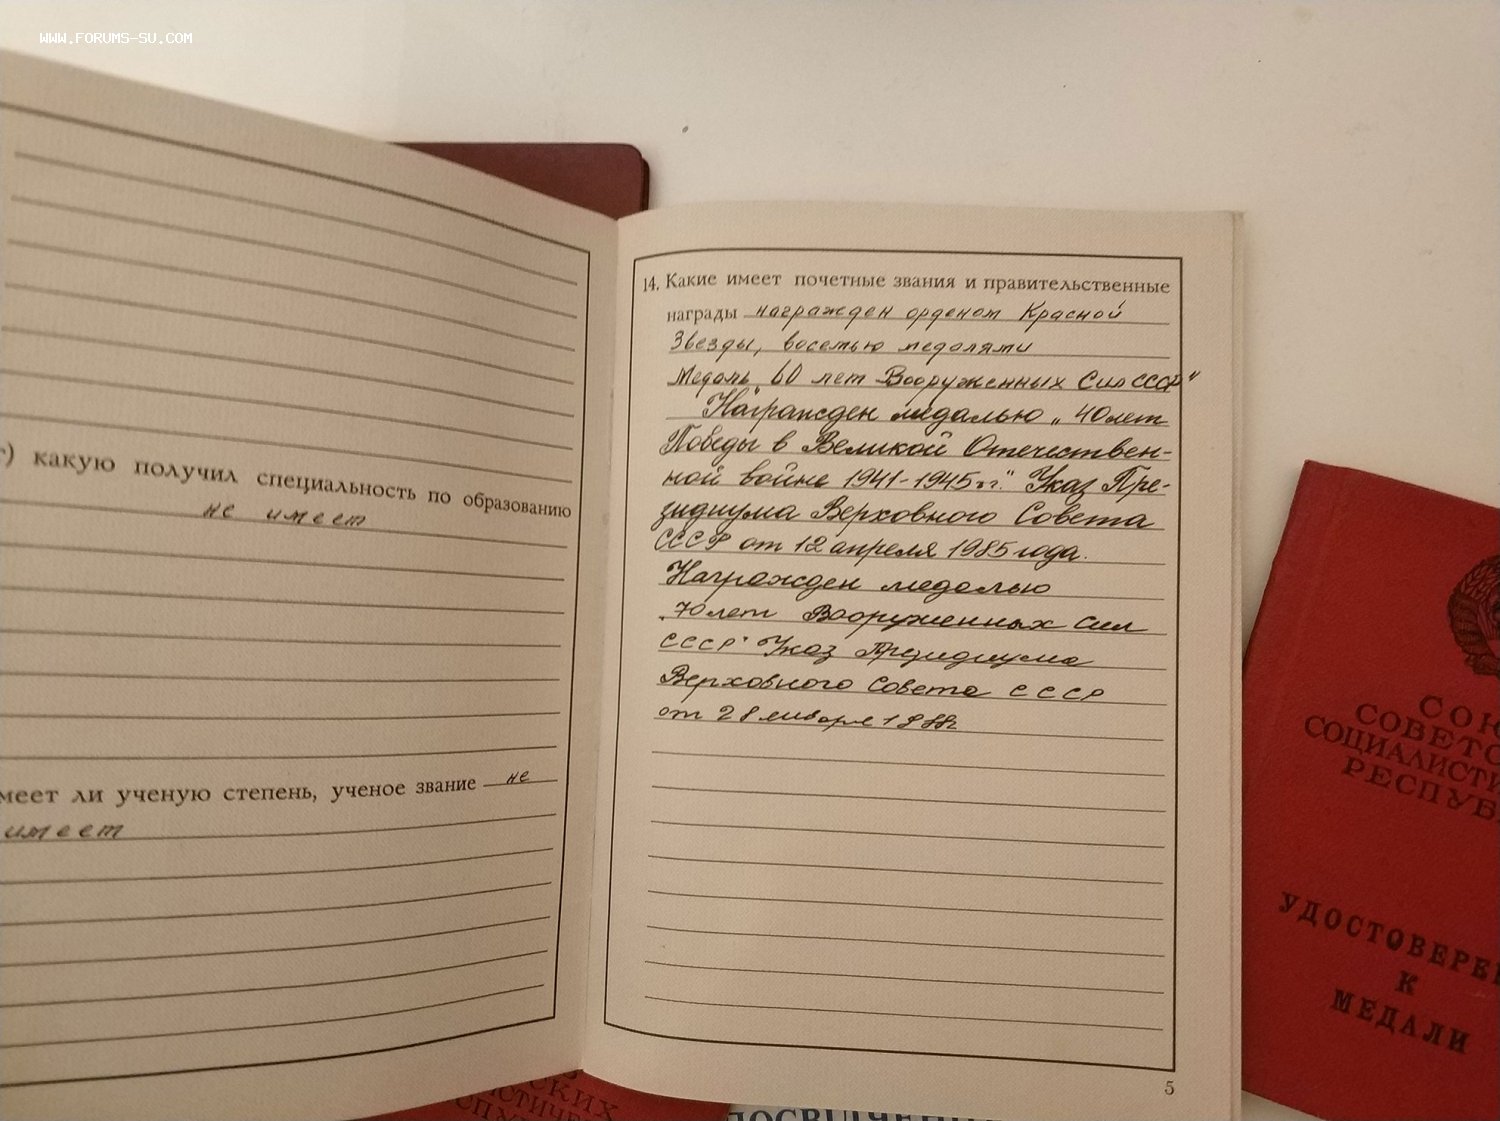 WWW.FORUMS-SU.COM
г) какую получил специальность по образованию
не имеет
меет ли ученую степень, ученое звание не
имеет
14. Какие имеет почетные звания и правительственные
награды награжден орденом Красной
Звезды, восемью медалями
Медаль "60 лет Вооруженных Сил СССР"
Награжден медалью „40 лет
Победы в Великой Отечествен-
ной войне 1941-1945 гг." Указ Пре-
зидиума Верховного Совета
СССР от 12 апреля 1985 года.
Награжден медалью
„70 лет Вооруженных Сил
СССР" Указ Президиума
Верховного Совета СССР
от 28 января 1988г
5
СОЮ
СОВЕТС
СОЦИАЛИСТИ
РЕСПУБ
УДОСТОВЕРЕН
К
МЕДАЛИ
СКИХ
ИСТИЧЕ
СПУ
ПОСВІДЧЕН